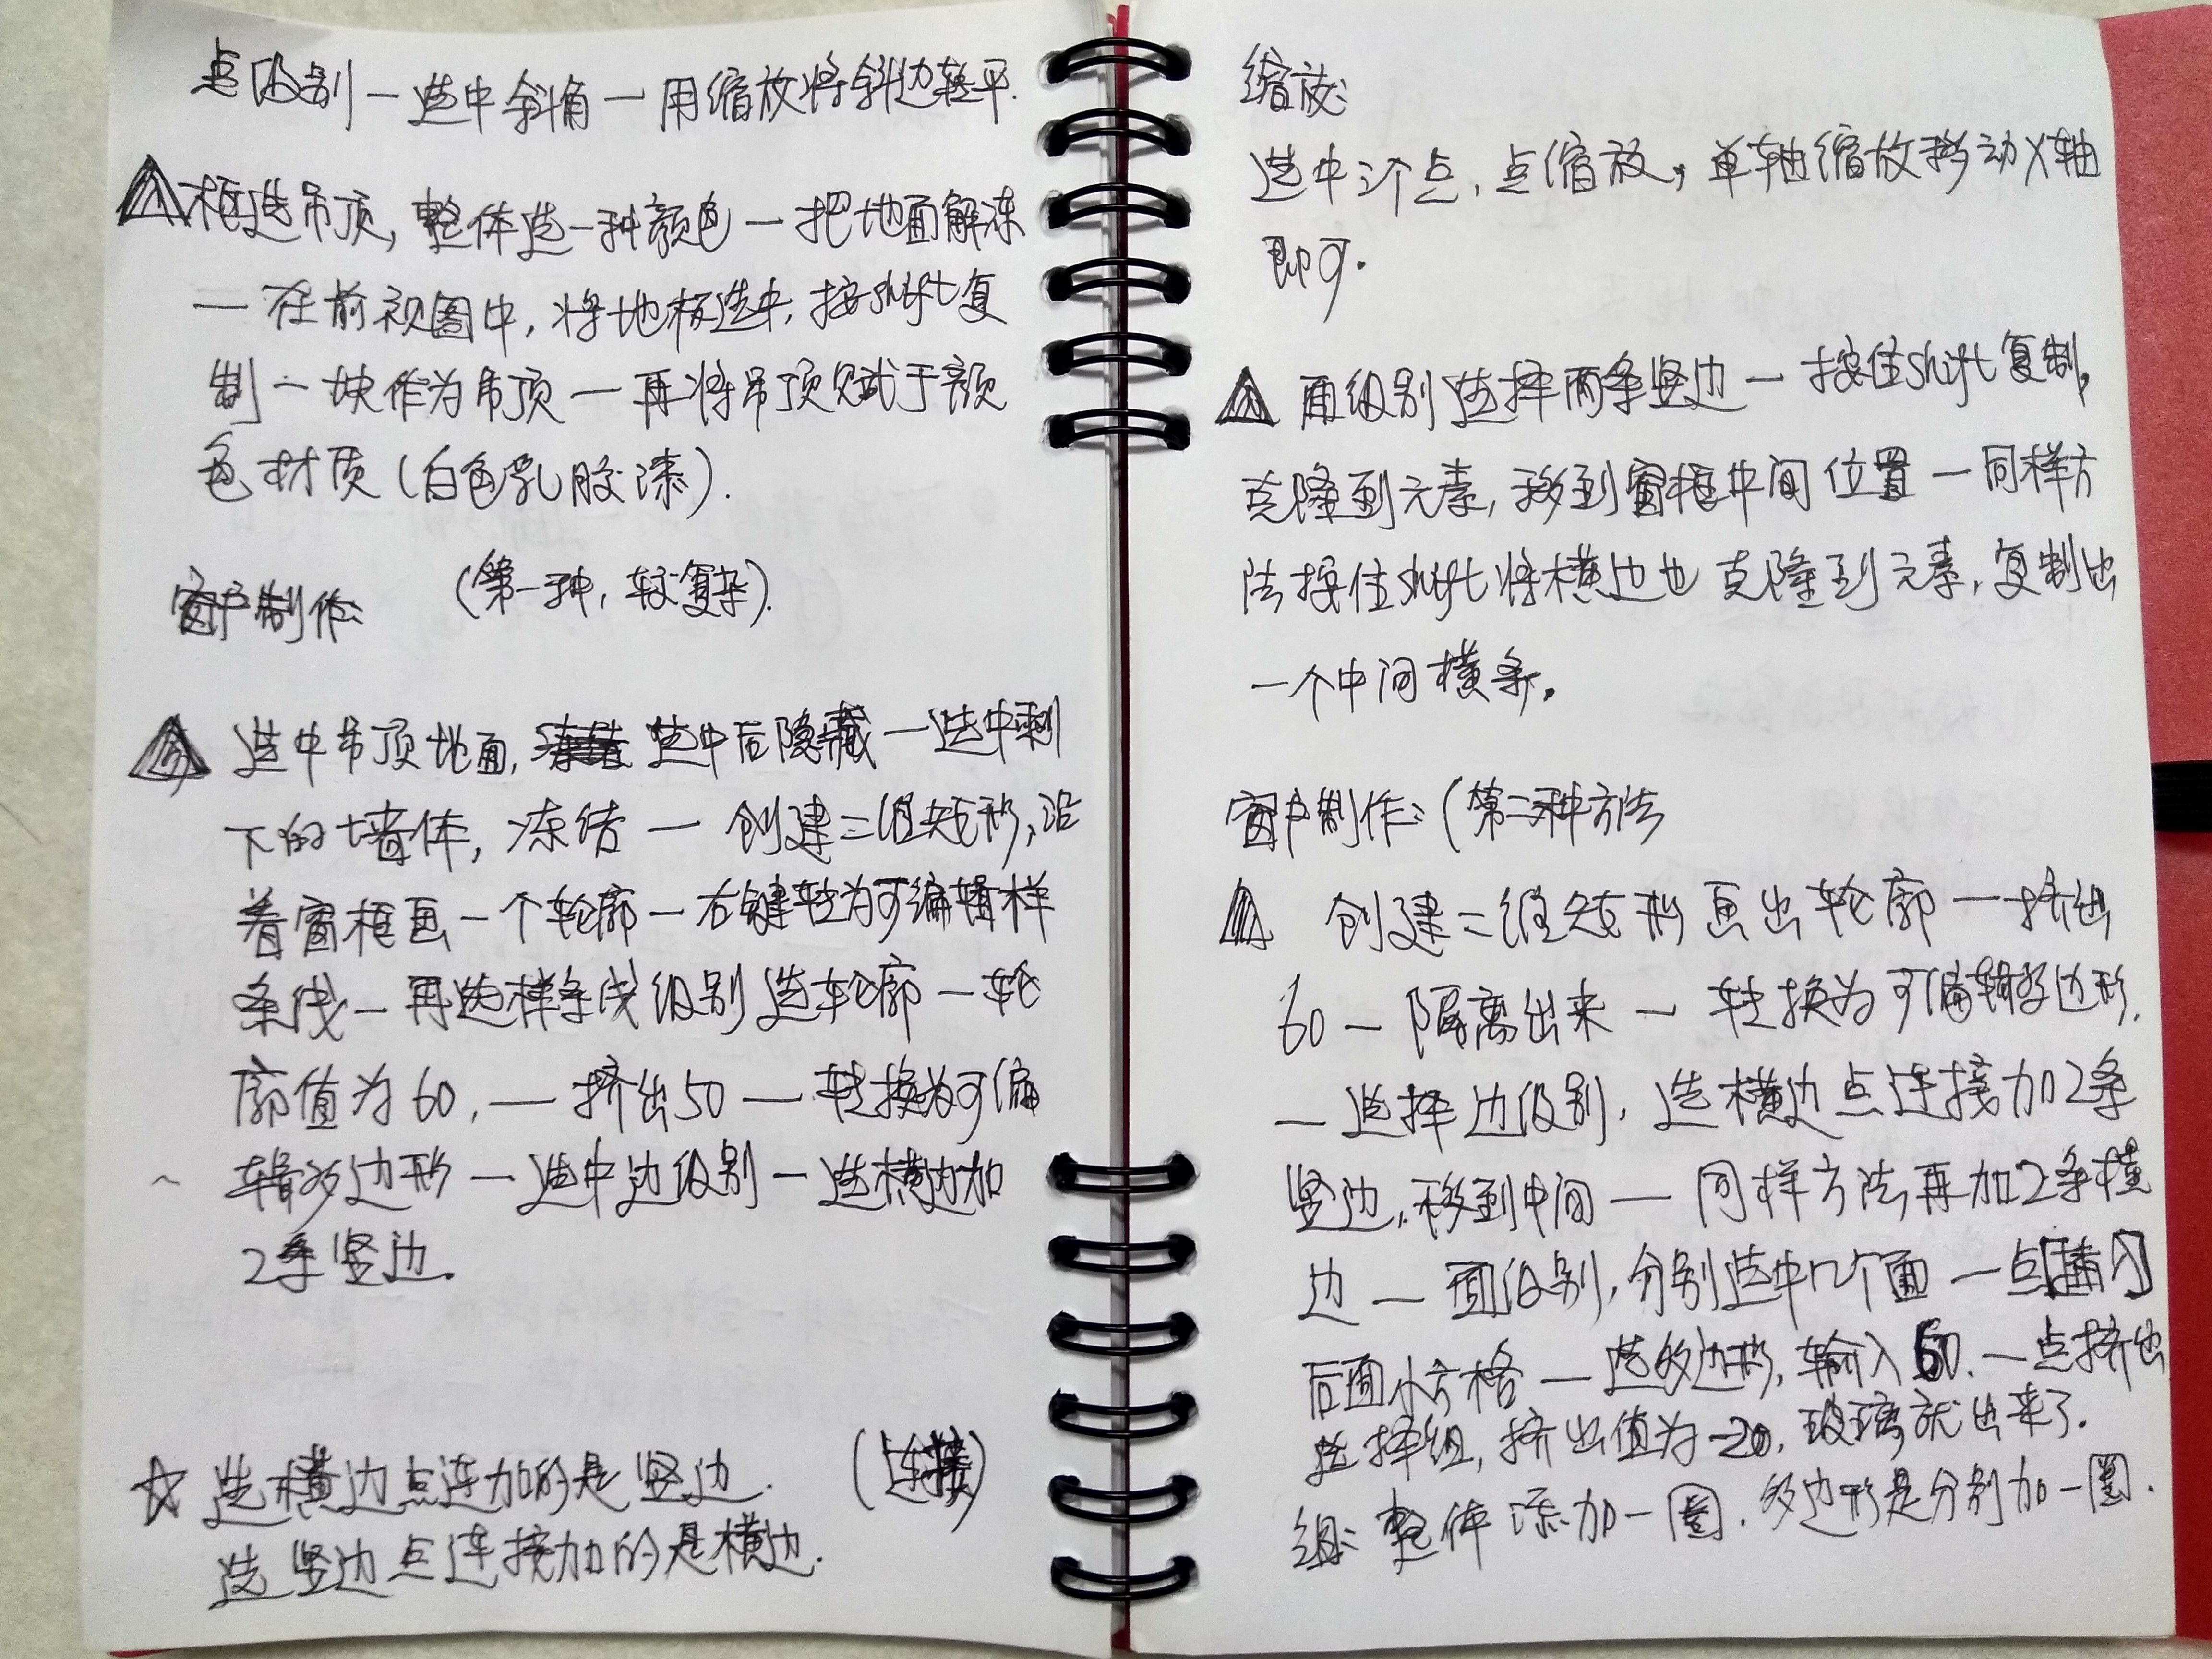 点级别一选中斜角一用缩放将斜边转平.
框选吊顶, 整体选一种颜色一把地面解冻
一在前视图中, 将地板选中, 按shift复
制一块作为吊顶一再将吊顶赋于颜
色材质(白色乳胶漆).
窗户制作: (第一种, 较复杂).
选中吊顶地面, 选中后隐藏一选中剩
下的墙体, 冻结一 创建二维矩形, 沿
着窗框画一个轮廓一右键转为可编辑样
条线一再选样条线级别选轮廓一轮
廓值为60, 一 挤出50 一转换为可编
辑多边形一选中边级别一选横边加
2条竖边.
☆ 选横边点连加的是竖边. (连接)
选竖边点连接加的是横边.
缩放:
选中2个点, 点缩放, 单轴缩放移动X轴
即可.
面级别选择两条竖边一按住shift复制,
克隆到元素, 移到窗框中间位置一同样方
法按住shift将横边也克隆到元素, 复制出
一个中间横条.
窗户制作: (第二种方法
创建二维矩形画出轮廓一挤出
60一隔离出来一转换为可编辑多边形.
一选择边级别, 选横边点连接加2条
竖边, 移到中间一 同样方法再加2条横
边一面级别, 分别选中几个面一点[插入]
后面小方格一选多边形, 输入60. 一点挤出
选择组, 挤出值为-20, 玻璃就出来了.
组: 整体添加一圈. 多边形是分别加一圈.